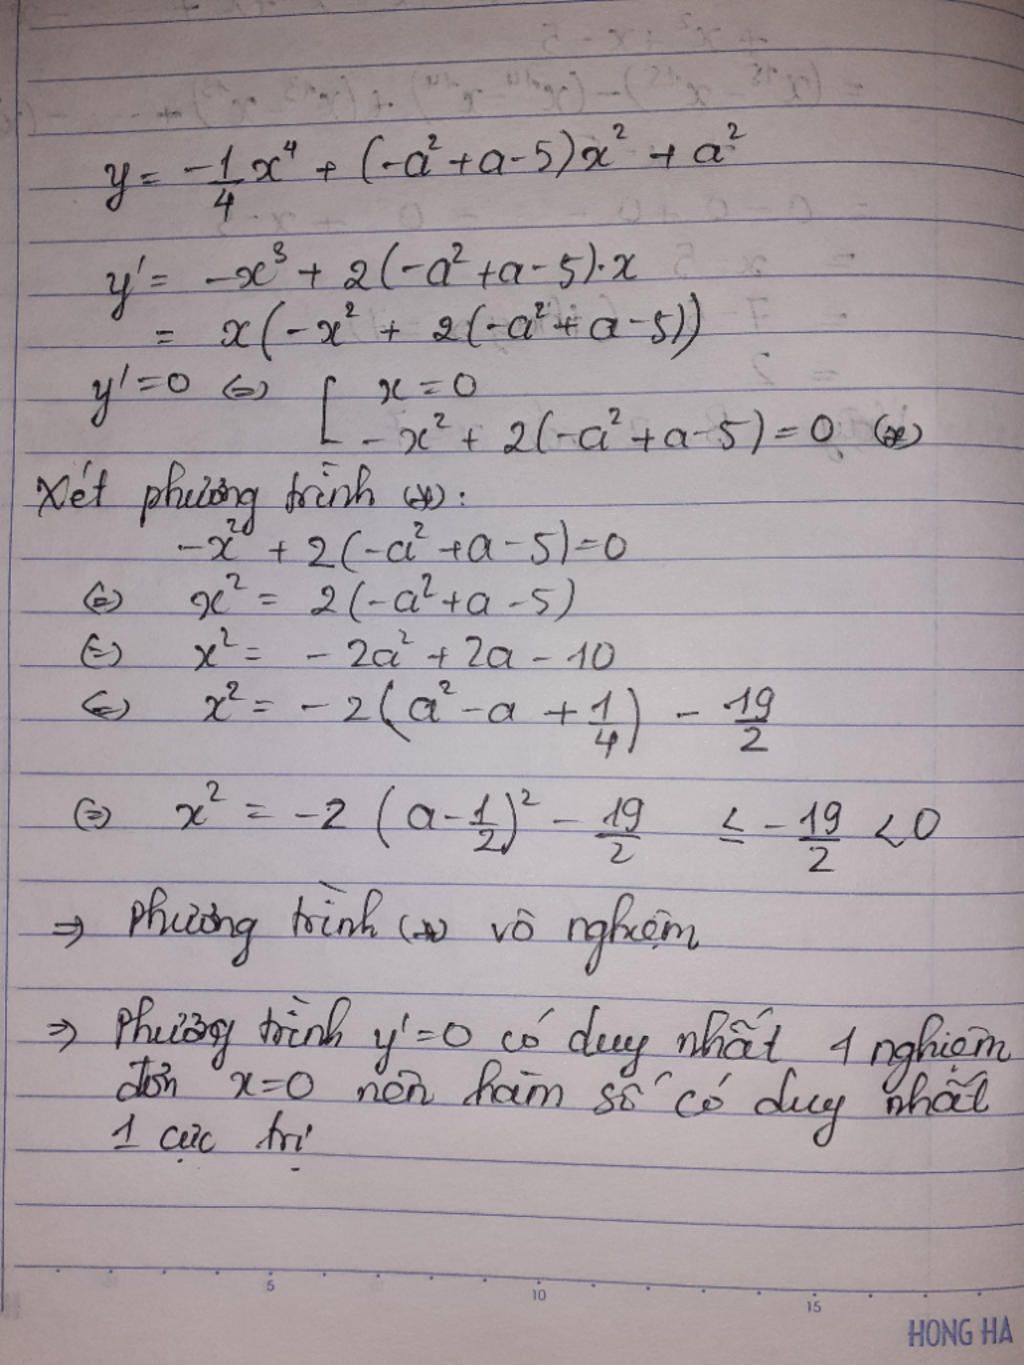 y = -1/4 x⁴ + (-a² + a - 5)x² + a²
y' = -x³ + 2(-a² + a - 5).x
= x(-x² + 2(-a² + a - 5))
y' = 0 ⇔ [ x = 0
-x² + 2(-a² + a - 5) = 0 (*)
Xét phương trình (*):
-x² + 2(-a² + a - 5) = 0
⇔ x² = 2(-a² + a - 5)
⇔ x² = -2a² + 2a - 10
⇔ x² = -2(a² - a + 1/4) - 19/2
⇔ x² = -2(a - 1/2)² - 19/2 ≤ -19/2 < 0
⇒ Phương trình (*) vô nghiệm
⇒ Phương trình y' = 0 có duy nhất 1 nghiệm
đơn x = 0 nên hàm số có duy nhất
1 cực trị
5 10 15
HONG HA